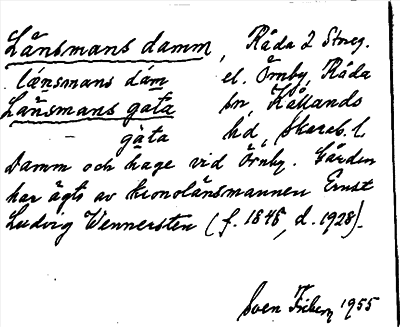 Länsmans damm, Råda 2 Storeg.
länsmans dam el. Örnby, Råda
Länsmans gata sn, Kållands
– gàta hd, Skarab. l.
Damm och hage vid Örnby. Gården
har ägts av kronolänsmannen Ernst
Ludvig Wennersten (f. 1848, d. 1928).
Sven Friberg 1955